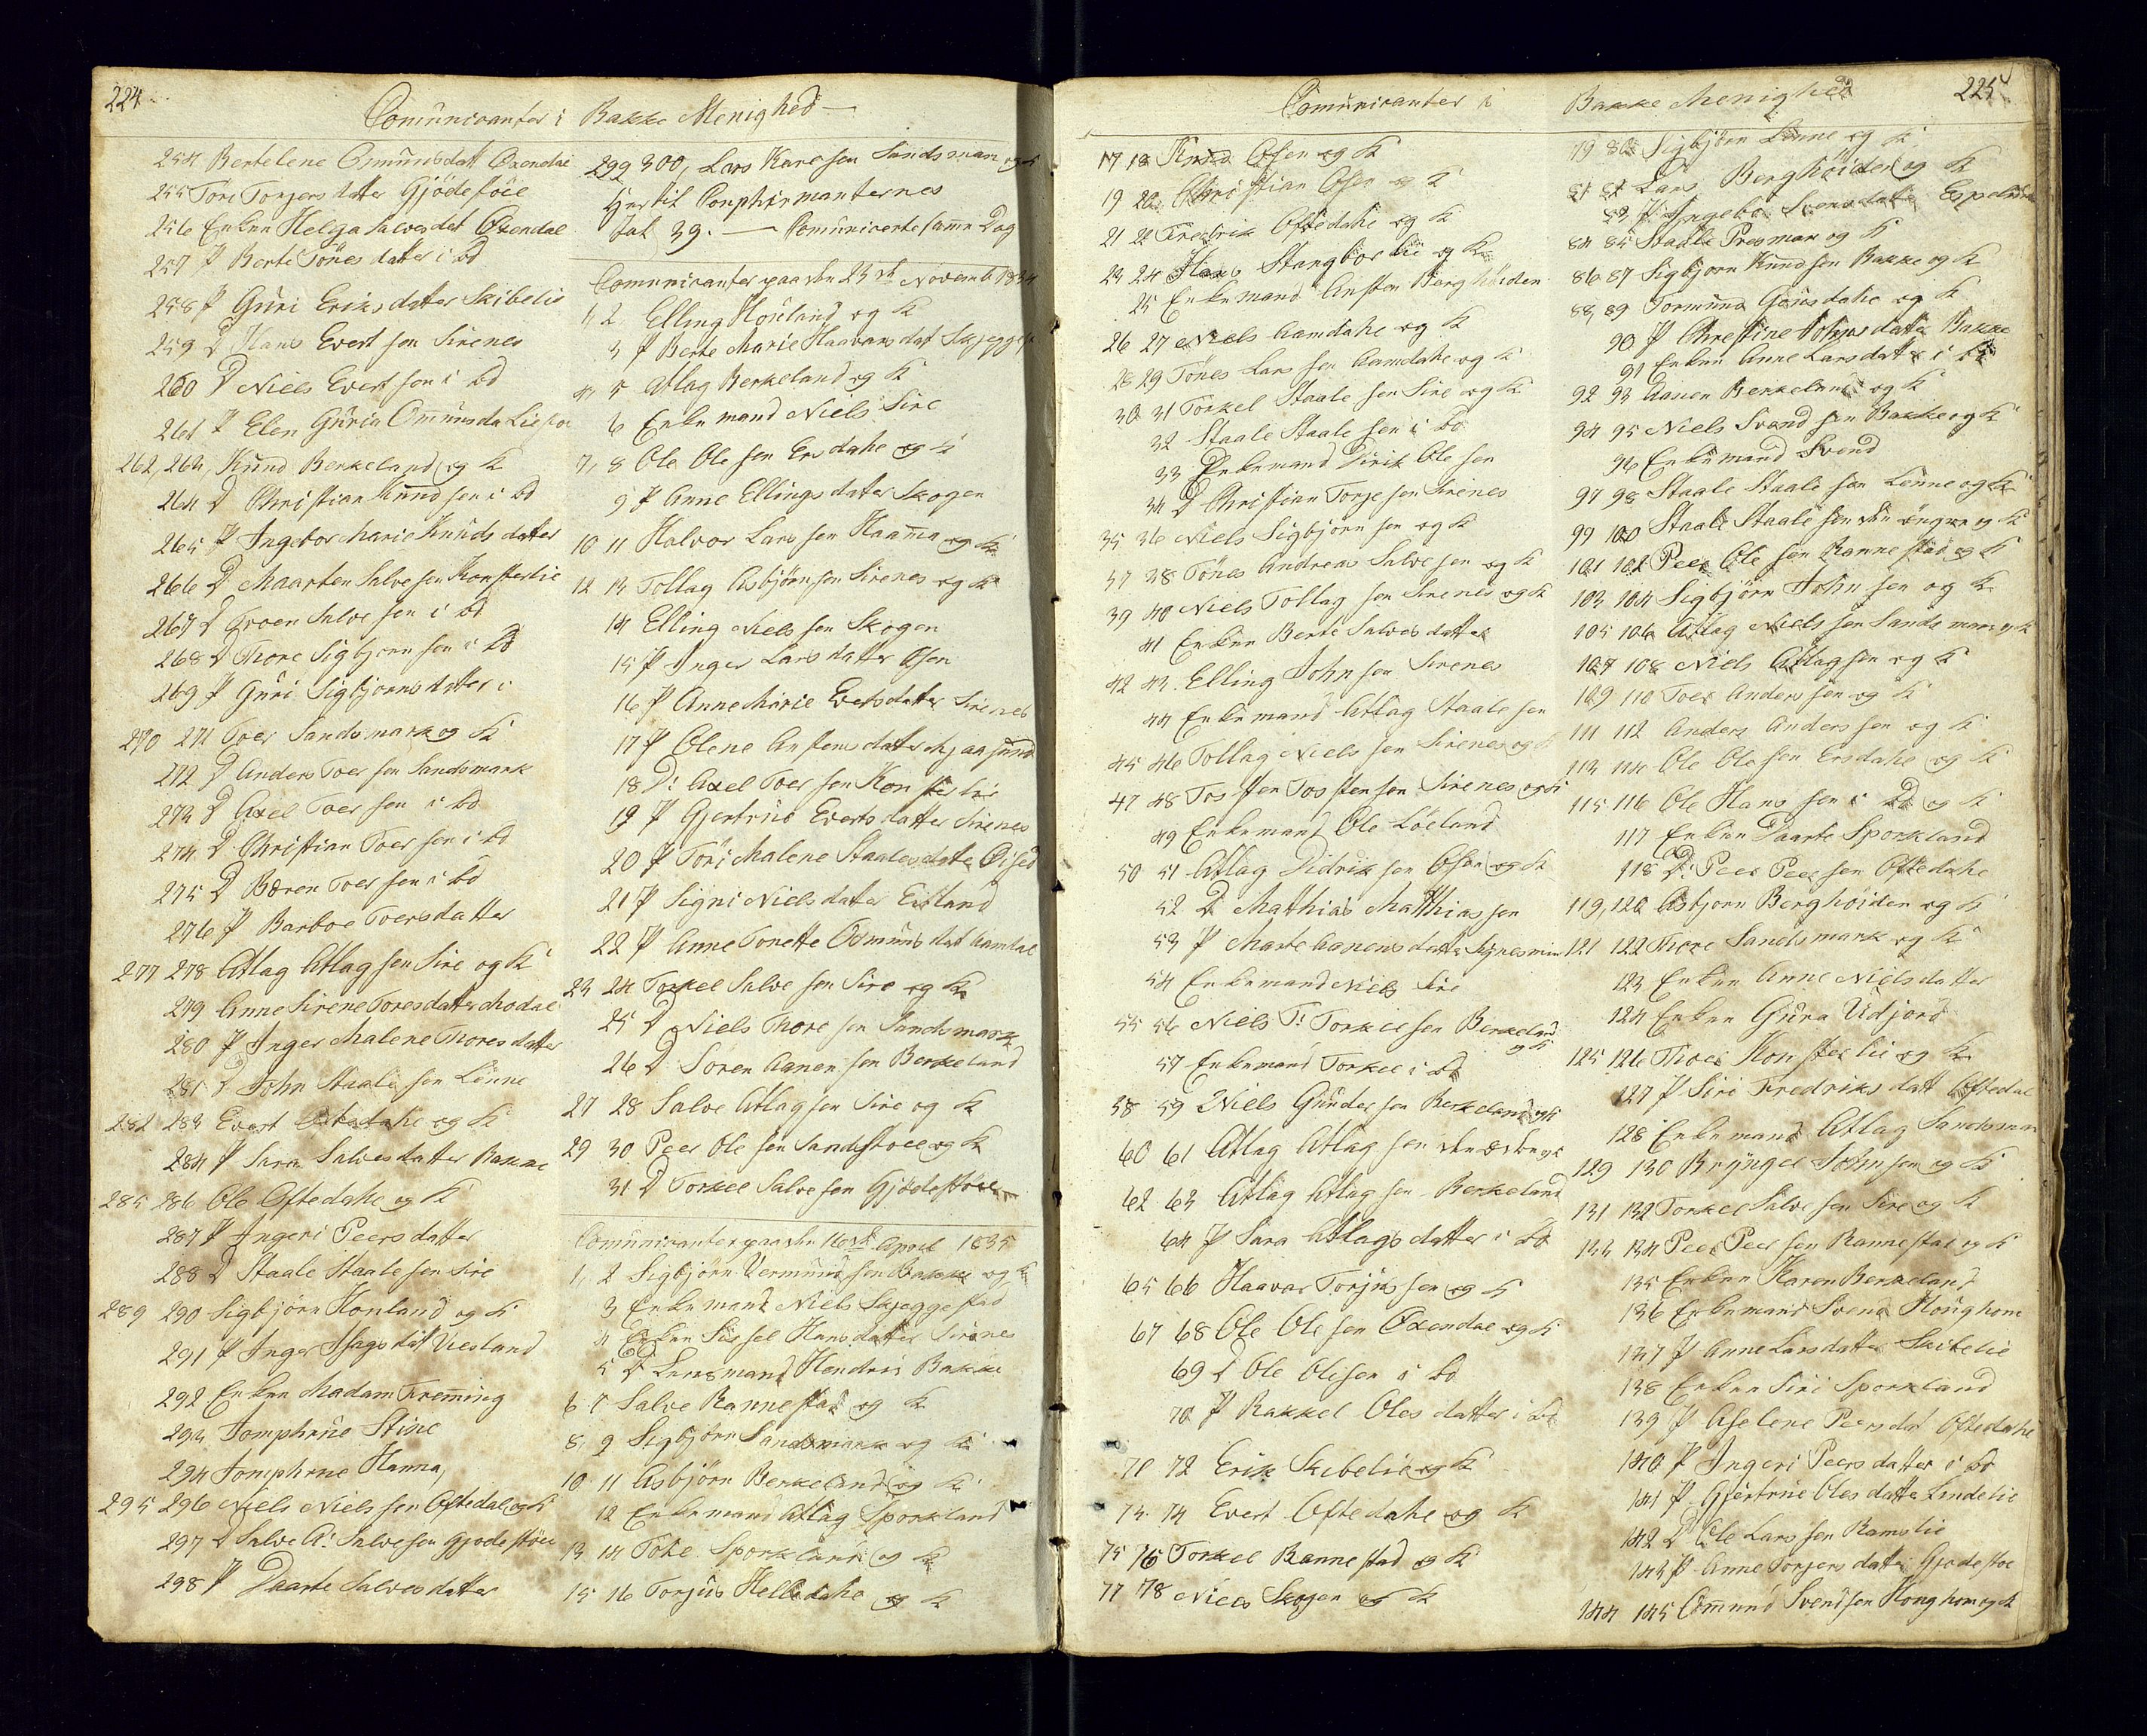 224
Comunicanter i Bakke Menighed
254 Bertelene Omunsdatt Oxendal
255 Tore Torgersdatter Gjödestöle
256 Enken Helga Salvesdat Oxendal
257 P Berte Tönes datter i bd
258 P Guri Eriksdater Skibelie
259 D Hans Evert sen Sirenes
260 D Niels Evertsen i bd
261 P Elen Guria Omunsda
262, 263, Knud Berkeland og K
264 D Christian Knudsen i bd
265 P Ingebor Marie Knuds datter
266 D Maarten Salvesen Konsterlie
267 D Salve sen i bd
268 D Thore Sigbjornsen i bd
269 P Guri Sigbjorns datter i
270 271 Toer Sandsmark og K
272 D Anders Toersen Sandsmark
273 D Axel Toersen i bd
274 D Christian Toersen i bd
275 D Bæren Toersen i bd
276 P Barboe Toersdatter
277 278 Atlag Atlagsen Sire og K
279 Anne Sirene Toresdatter Modal
280 P Inger Malene Thores datter
281 D John Staalesen Lönne
282 283 Evert Oftedahe og K
284 P Sara Salvesdatter Bakke
285 286 Ole Oftedahe og K
287 P Ingeri Peersdatter
288 D Staale Staalesen Sire
289 290 Sigbjörn Honland og K
291 P Inger Isagsdat Viesland
292 Enken Madam Fremming
293 Jomphrue Stine
294 Jomphrue Hanna,
295 296 Niels Nielssen Oftedal og K
297 D Salve A: Salvesen Gjödestöle
298 P Daarte Salvesdatter
299 300, Lars Karesen Sandsmark og K
Hertil Conphirmanternes
Tal 39. — Comunicerte samme Dag
Comunicanter paa den 23de Novemb 1834
1, 2 Elling Honland og K
3 P Berte Marie Haavarsdat Skjegge
4, 5 Atlag Berkeland og K
6 Enkemand Niels Sire
7, 8 Ole Olesen Ersdahe og K
9 P Anne Ellingsdater Skogen
10 11 Halvor Larssen Haanna og K
12 13 Tollag Asbjörnsen Sirenes og K
14 Elling Nielssen Skogen
15 P Inger Larsdatter Osen
16 P Anne Marie Evertsdatter Sirenes
17 P Olene Anstensdater Mjaasund
18 D: Axel Toersen Konsterlie
19 P Gjertrud Evertsdatter Sirenes
20 P Tori Malene Staalesdater
21 P Signi Nielsdater Eitland
22 P Anne Tonette Osmunsdat Aamdal
23 24 Torkel Salvesen Sire og K
25 D Niels Thoresen Sandsmark
26 D Soren Aanensen Berkeland
27 28 Salve Atlagsen Sire og K
29 30 Peer Olesen Sandstoel og K
31 D Torkel Salvesen Gjödestöle
Comunicanter paa den 16de April 1835
1, 2 Sigbjörn Vermundsen Bakke og K
3 Enkemand Niels Skjeggestad
4 Enken Sissel Hansdatter Sirenes
5 D Lensmand Hendric Bakke
6 7 Salve Rannestad og K
8, 9 Sigbjörn Sandsmark og K
10 11 Asbjörn Berkeland og K
12 Enkemand Atlag Sporkland
13 14 Tohe Sporkland og K
15 16 Torjus Helledahe og K
225
Comunicanter i Bakke Menighed
17 18 Knud Osen og K
19 20 Christian Osen og K
21 22 Fredrik Oftedahe og K
23 24 Hans Stangborlie og K
25 Enkemand Ansten Berghöiden
26 27 Niels Aamdahe og K
28 29 Tönes Larssen Aamdahe og K
30 31 Torkel Staalesen Sire og K
32 Staale Staalesen i bd
33 Enkemand Dirik Olesen
34 D Christian Torjesen Sirenes
35 36 Niels Sigbjörnsen og K
37 38 Tönes Andreas Salvesen og K
39 40 Niels Tollagsen Sirenes og K
41 Enken Berte Salvesdatter
42 43 Elling Johnsen Sirenes
44 Enkemand Atlag Staalesen
45 46 Tollag Nielssen Sirenes og K
47 48 Tosten Tostensen Sirenes og K
49 Enkemand Ole Löeland
50 51 Atlag Didriksen Osen og K
52 D Mathias Matthiassen
53 P Marte Aanensdatter
54 Enkemand Niels Sire
55 56 Niels T: Torkilsen Berkeland og K
57 Enkemand Torkel i bd
58 59 Niels Gundersen Berkeland og K
60 61 Atlag Atlagsen den ældre og K
62 63 Atlag Atlagsen Berkeland
64 P Sara Atlagsdatter i bd
65 66 Haavar Torjussen og K
67 68 Ole Olesen Oxendal og K
69 D Ole Olisen i bd
70 P Rakkel Olesdatter i bd
71 72 Erik Skibelie og K
73 74 Evert Oftedahe og K
75 76 Torkel Rannestad og K
77 78 Niels Skogen og K
79 80 Sigbjörn Lönne og K
81 82 Lars Berghöiden og K
83 P Ingebor Svensdatter
84 85 Staale Presmar og K
86 87 Sigbjorn Knudsen Bakke og K
88, 89 Tormund Gausdahe og K
90 P Christine Johnsdatter Bakke
91 Enken Anne Larsdatter i bd
92 93 Aanen Berkeland og K
94 95 Niels Svendsen Bakke og K
96 Enkemand Svend
97 98 Staale Staalesen Lönne og K
99 100 Staale Staalesen den öngre og K
101 102 Peer Olesen Rannestad og K
103 104 Sigbjörn Johnsen og K
105 106 Atlag Nielssen Sandsmark og K
107 108 Niels Atlagsen og K
109 110 Toer Anderssen og K
111 112 Anders Anderssen og K
113 114 Ole Olesen Ersdahe og K
115 116 Ole Hanssen i bd og K
117 Enken Daarte Sporkland
118 D: Peer Peersen Oftedahe
119, 120 Asbjorn Berghöiden og K
121 122 Thore Sandsmark og K
123 Enken Anne Nielsdatter
124 Enken Gura Udjord
125 126 Thoer Konsterlie og K
127 P Siri Fredriksdatt Oftedal
128 Enkemand Atlag Sandsmar
129 130 Bryngel Johnsen og K
131 132 Torkel Salvesen Sire og K
133 134 Peer Peersen Rannestad og K
135 Enken Karen Berkeland
136 Enkemand Svend Houghom
137 P Anne Larsdatter Skibelie
138 Enken Siri Sporkland
139 P Aselene Peersdat Oftedahe
140 P Ingeri Peersdatter i bd
141 P Gjertrue Olesdatter Lindelie
142 D Ole Larssen Ramslie
143 P Anne Torjersdatter Gjödestöe
144 145 Omund Svendsen Houghom og K